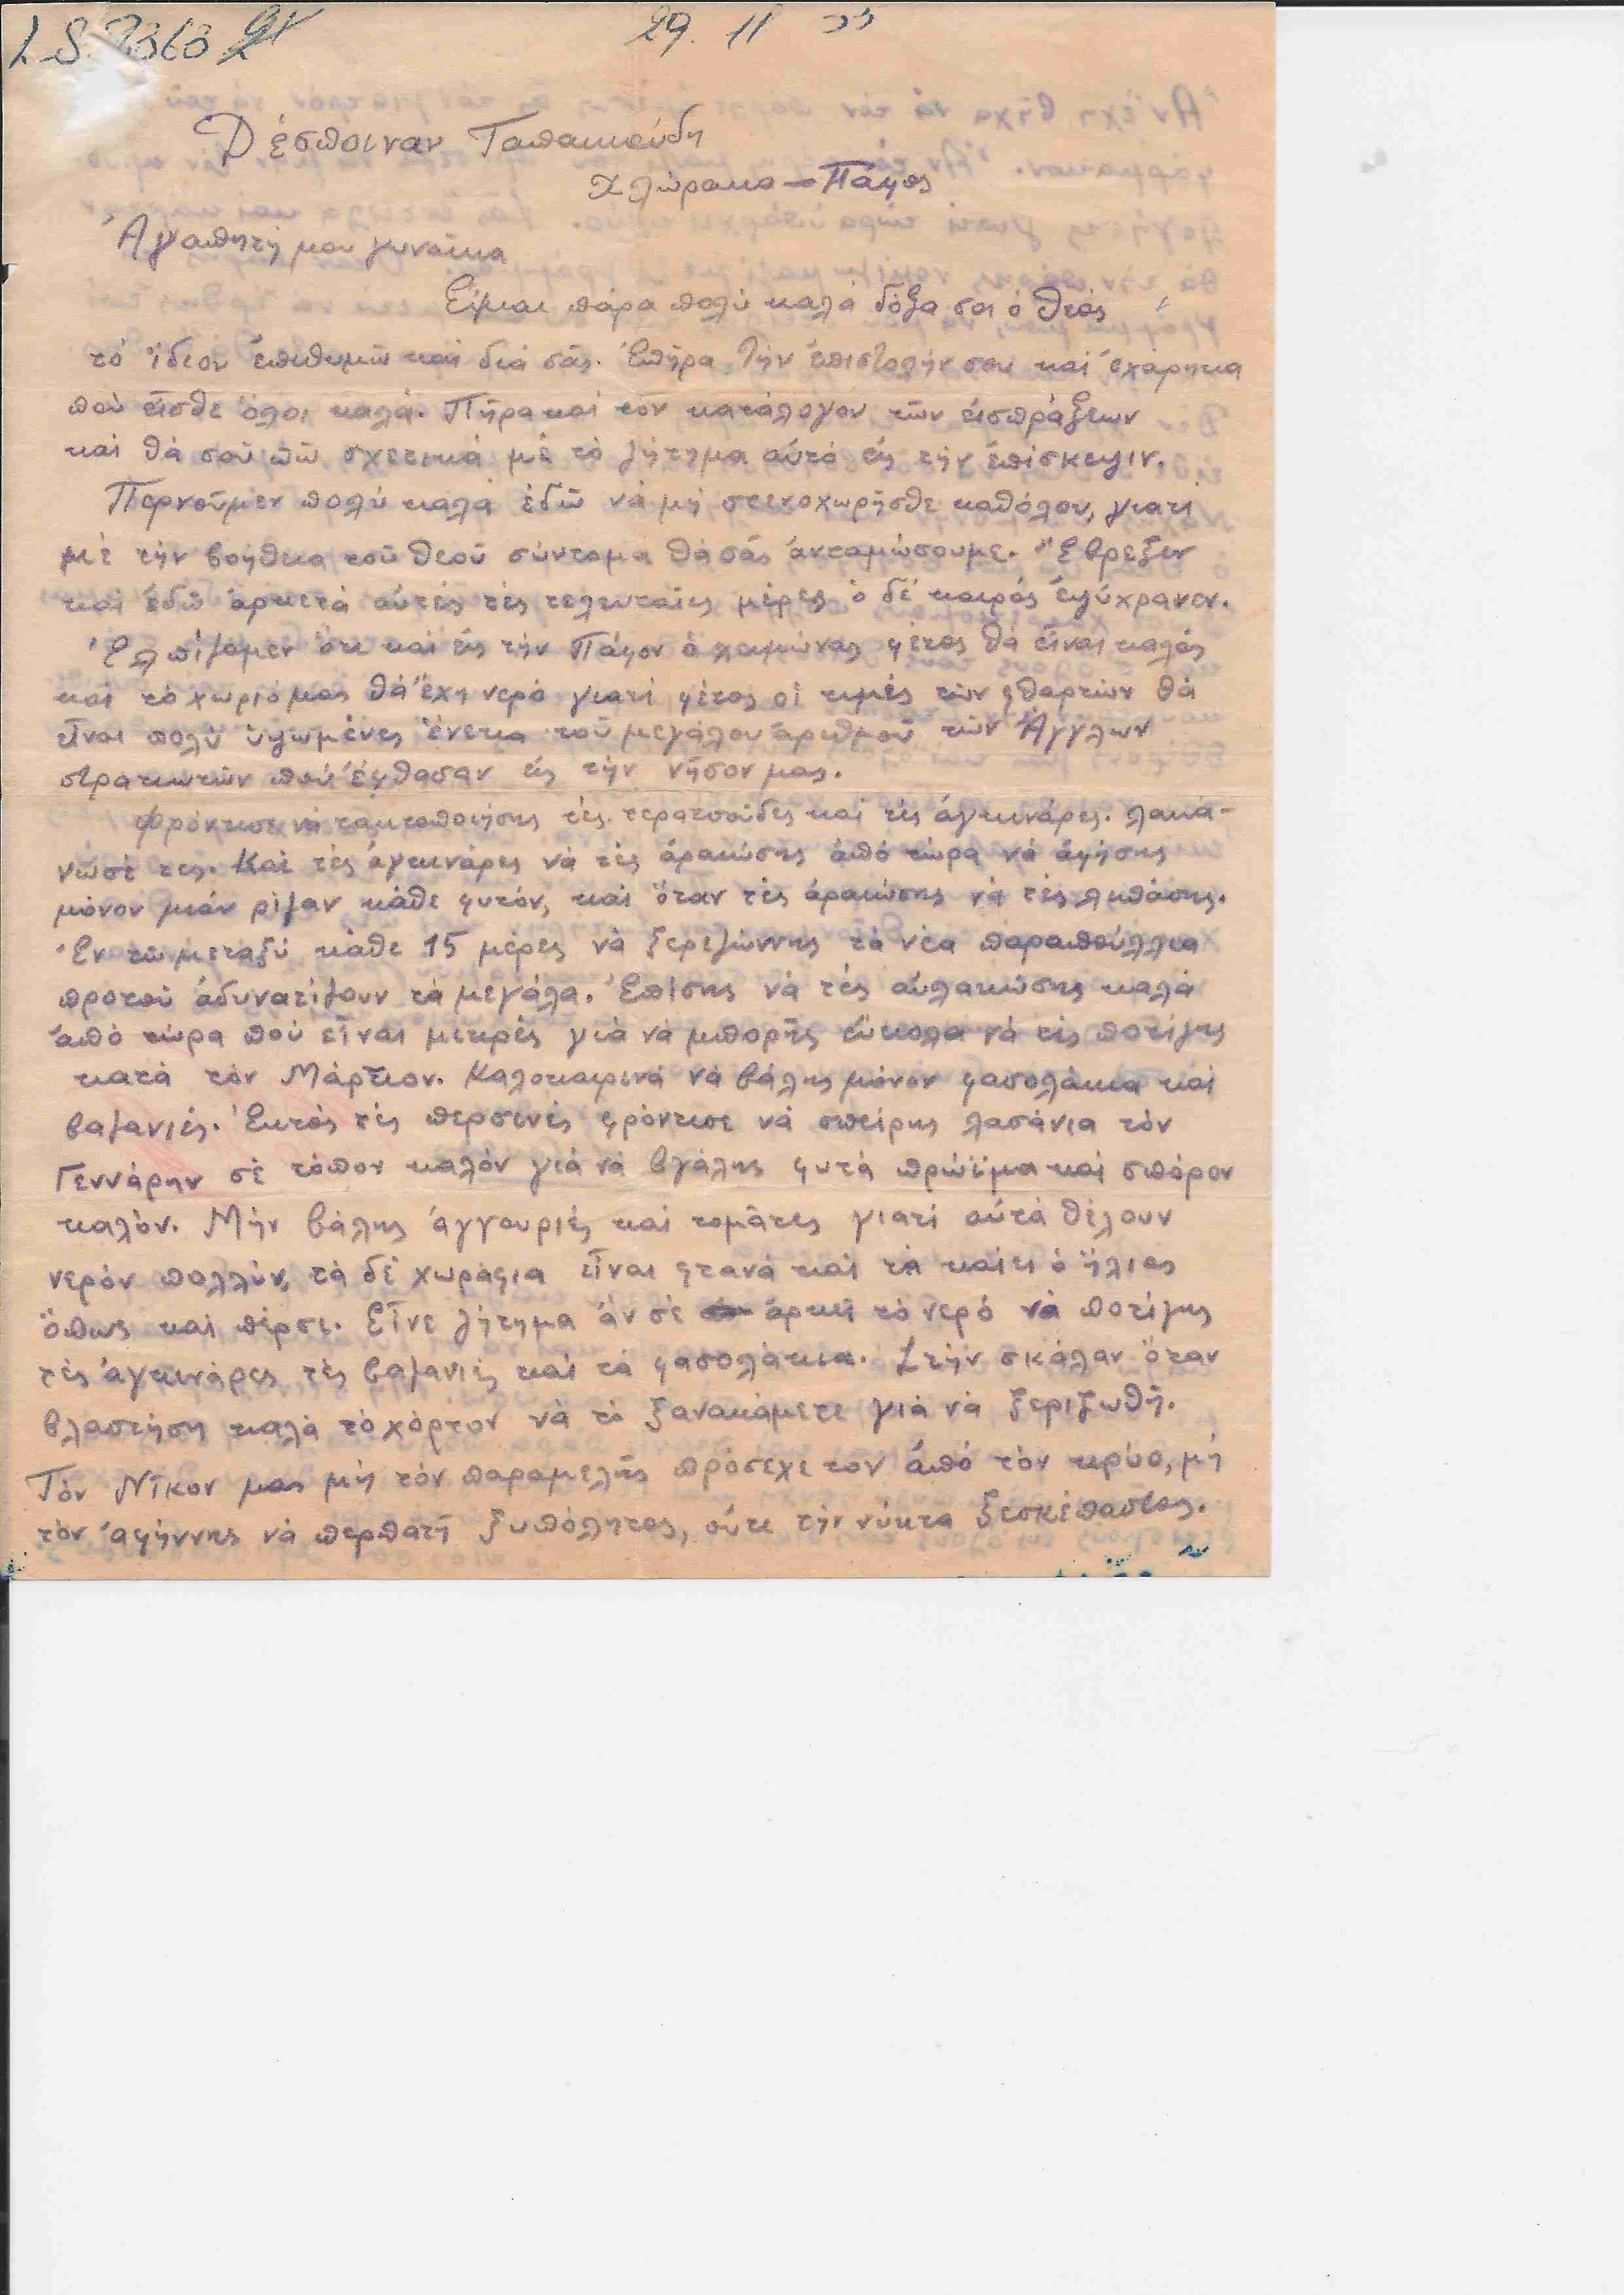 29. 11 55
Δέσποιναν Ταπακούδη
Χλώρακα — Πάφος
Ἀγαπητή μου γυναῖκα
Εἶμαι πάρα πολύ καλά δόξα σοι ὁ Θεός
τό ἴδιον ἐπιθυμῶ καί διά σᾶς. Ἐπῆρα τήν ἐπιστολήν σου καί ἐχάρηκα
πού εἶσθε ὅλοι καλά. Πῆρα καί τόν κατάλογον τῶν εἰσπράξεων
καί θά σοῦ πῶ σχετικά μέ τό ζήτημα αὐτό εἰς τήν ἐπίσκεψιν.
Περνοῦμεν πολύ καλά ἐδῶ νά μή στενοχωρῆσθε καθόλου, γιατί
μέ τήν βοήθεια τοῦ Θεοῦ σύντομα θά σᾶς ἀνταμώσουμε. Ἔβρεξεν
καί ἐδῶ ἀρκετά αὐτές τές τελευταῖες μέρες ὁ δέ καιρός ἐψύχρανεν.
Ἐλπίζομεν ὅτι καί εἰς τήν Πάφον ὁ χειμώνας φέτος θά εἶναι καλός
καί τό χωριό μας θά ἔχη νερό γιατί φέτος οἱ τιμές τῶν φθαρτῶν θά
εἶναι πολύ ὑψωμένες ἕνεκα τοῦ μεγάλου ἀριθμοῦ τῶν Ἄγγλων
στρατιωτῶν πού ἔφθασαν εἰς τήν νῆσον μας.
Φρόντισε νά τακτοποιήσης τές τερατσούδες καί τές ἀγκινάρες. Λακά-
νωσέ τες. Καί τές ἀγκινάρες νά τές ἀρακώσης ἀπό τώρα νά ἀφήσης
μόνον μιάν ρίζαν κάθε φυτόν, καί ὅταν τές ἀρακώσης νά τές λιπάσης.
Ἐν τῶ μεταξύ κάθε 15 μέρες νά ξεριζώννης τά νέα παραπούλλια
προτοῦ ἀδυνατίζουν τά μεγάλα. Ἐπίσης νά τές αὐλακώσης καλά
ἀπό τώρα πού εἶναι μικρές γιά νά μπορῆς εὔκολα νά τές ποτίζης
κατά τόν Μάρτιον. Καλοκαιρινά νά βάλης μόνον φασολάκια καί
βαζανιές. Ἐκτός τές περσινές φρόντισε νά σπείρης λασάνια τόν
Γεννάρην σέ τόπον καλόν γιά νά βγάλης φυτά πρώϊμα καί σπόρον
καλόν. Μήν βάλης ἀγγουριές καί τομάτες γιατί αὐτά θέλουν
νερόν πολλύν, τά δέ χωράφια εἶναι φτανά καί τά καίει ὁ ἥλιος
ὅπως καί πέρσι. Εἶνε ζήτημα ἄν σέ ἀρκεῖ τό νερό νά ποτίζης
τές ἀγκινάρες τές βαζανιές καί τά φασολάκια. Στήν σκάλαν ὅταν
βλαστήση καλά τό χόρτον νά τό ξανακάμετε γιά νά ξεριζωθῆ.
Τόν Νῖκον μας μή τόν παραμελῆς πρόσεχε τον ἀπό τόν κρύο, μή
τόν ἀφήννης νά περπατῆ ξυπόλητος, οὔτε τήν νύκτα ξεσκέπαστος.